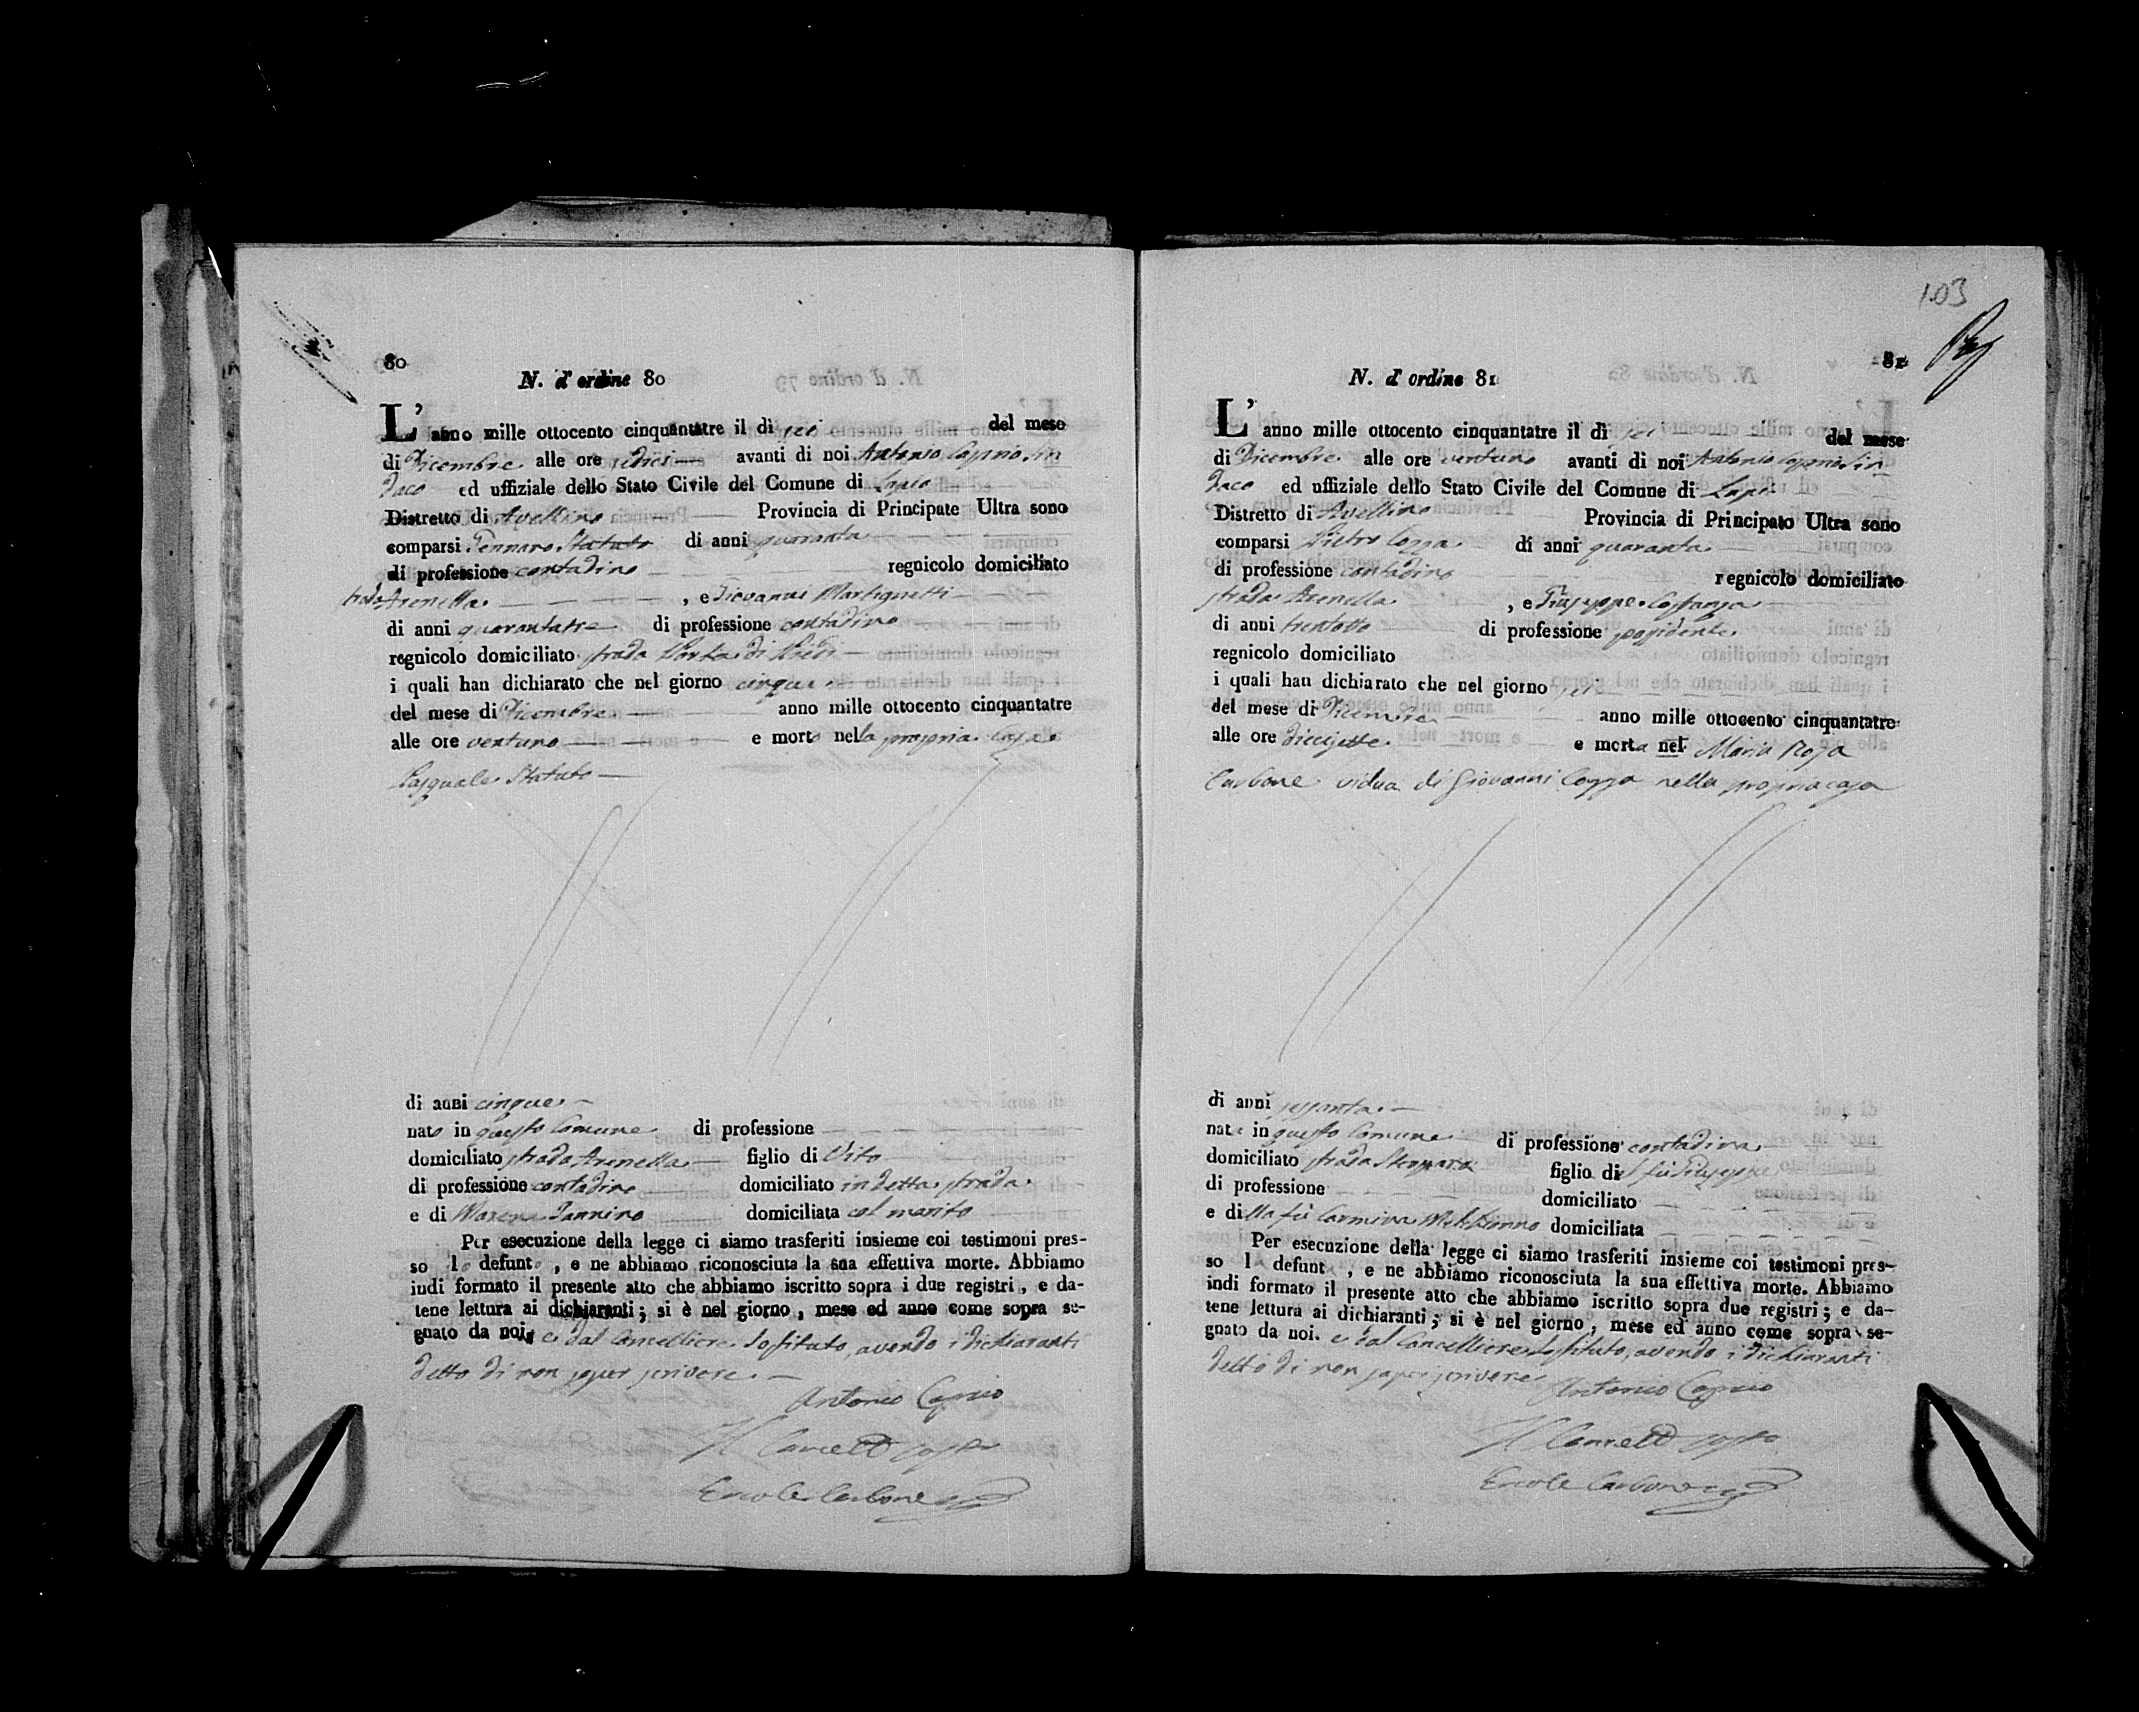 80
N. d'ordine 80
L' anno mille ottocento cinquantatre il di sei del mese
di Dicembre alle ore sedici avanti di noi Antonio Caprio Sin
daco ed uffiziale dello Stato Civile del Comune di Lapio
Distretto di Avellino Provincia di Principate Ultra sono
comparsi Gennaro Statuto di anni quaranta
di professione contadino regnicolo domiciliato
strada Arenella , e Giovanni Martignetti
di anni quarantatre di professione contadino
regnicolo domiciliato strada Porta di Piedi
i quali han dichiarato che nel giorno cinque
del mese di Dicembre anno mille ottocento cinquantatre
alle ore ventuno e morto nella propria casa
Pasquale Statuto
di anni cinque
nato in questo Comune di professione
domiciliato strada Arenella figlio di Vito
di professione contadino domiciliato in detta strada
e di domiciliata col marito
Per esecuzione della legge ci siamo trasferiti insieme coi testimoni pres-
so lo defunto , e ne abbiamo riconosciuta la sua effettiva morte. Abbiamo
indi formato il presente atto che abbiamo iscritto sopra i due registri , e da-
tene lettura ai dichiaranti ; si è nel giorno , mese ed anno come sopra se-
gnato da noi, e dal Cancelliere Sostituto, avendo i dichiaranti
detto di non saper scrivere.
Antonio Caprio
Il Cancell sosto
Ercole Carbone
103
81
N. d'ordine 81
L' anno mille ottocento cinquantatre il dì sei del mese
di Dicembre alle ore ventuno avanti di noi Antonio Caprio Sin
daco ed uffiziale dello Stato Civile del Comune di Lapio
Distretto di Avellino Provincia di Principato Ultra sono
comparsi Pietro Cozza di anni quaranta
di professione contadino regnicolo domiciliato
strada Arenella , e Giuseppe Costanza
di anni trentotto di professione possidente
regnicolo domiciliato
i quali han dichiarato che nel giorno sei
del mese di Dicembre anno mille ottocento cinquantatre
alle ore diecisette e morta nel Maria Rosa
Carbone vidua di Giovanni Cozza nella propria casa
di anni sessanta
nata in questo Comune di professione contadina
domiciliato strada figlia di fu Giuseppe
di professione domiciliato
e di lla fù Carmina domiciliata
Per esecuzione della legge ci siamo trasferiti insieme coi testimoni pres-
so l defunt , e ne abbiamo riconosciuta la sua effettiva morte. Abbiamo
indi formato il presente atto che abbiamo iscritto sopra due registri ; e da-
tene lettura ai dichiaranti ; si è nel giorno , mese ed anno come sopra se-
gnato da noi. e dal Cancelliere sostituto, avendo i dichiaranti
detto di non saper scrivere
Antonio Caprio
Il Cancell sosto
Ercole Carbone